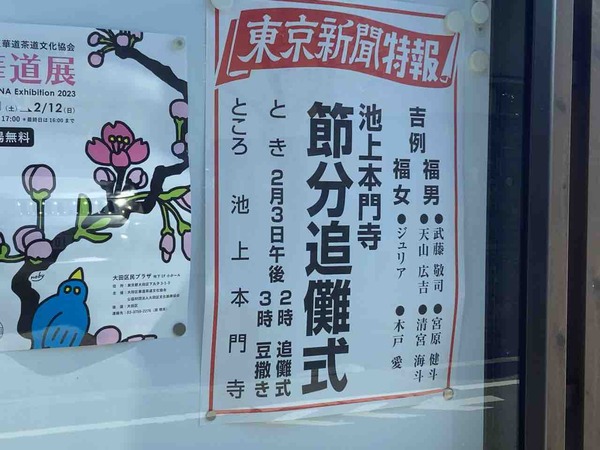 東京新聞特報
吉例 福男 ●武藤 敬司 ●宮原 健斗
●天山 広吉 ●清宮 海斗
福女 ●ジュリア ●木戸 愛
池上本門寺
節分追儺式
とき 2月3日午後 2時 追儺式
3時 豆撒き
ところ 池上本門寺
華道茶道文化協会
華道展
NA Exhibition 2023
(土) 2/12(日)
17:00 *最終日は16:00まで
場無料
大田区民プラザ